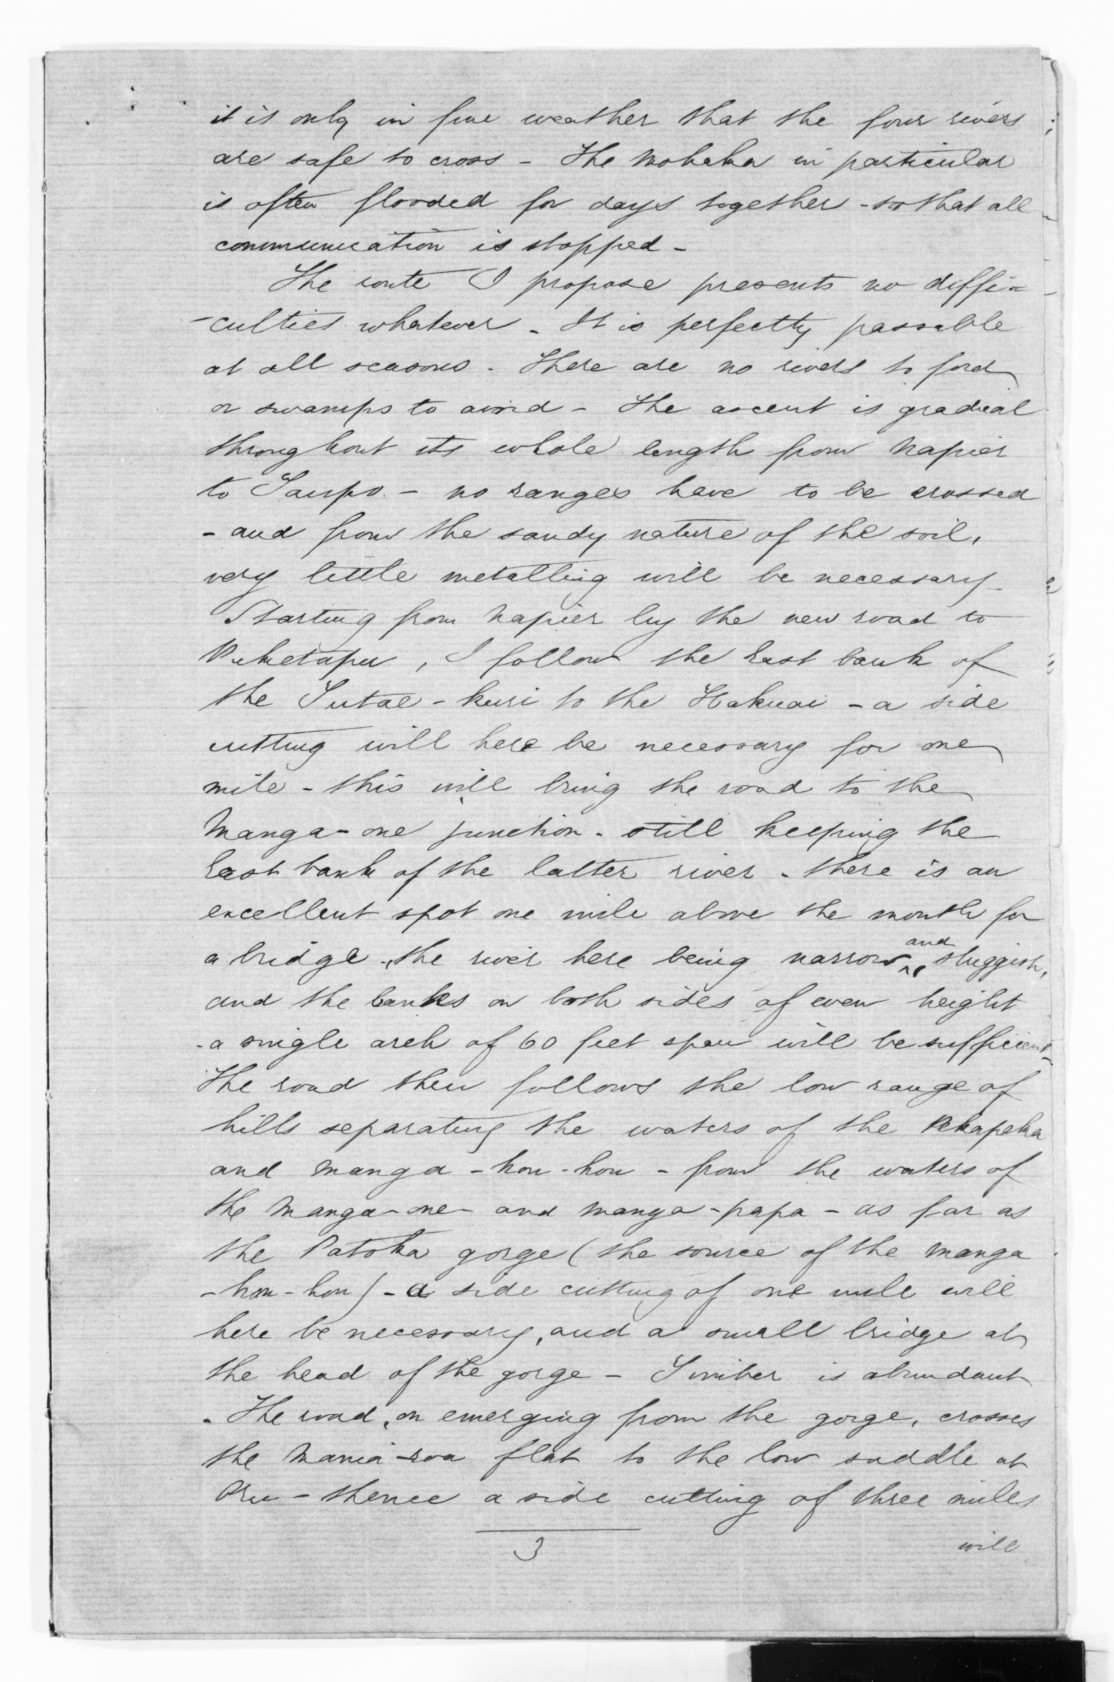 it is only in fine weather that the four rivers
are safe to cross - The Mohaka in particular
is often flooded for days together - so that all
communication is stopped -
The route I propose presents no diffi-
-culties whatever - It is perfectly passable
at all seasons - There are no rivers to ford
or swamps to avoid - The ascent is gradual
throughout its whole length from Napier
to Taupo - no ranges have to be crossed
- and from the sandy nature of the soil,
very little metalling will be necessary -
Starting from Napier by the new road to
Puketapu, I follow the East bank of
the Tutae-kuri to the Hakuai - a side
cutting will here be necessary for one
mile - this will bring the road to the
Manga-one junction - still keeping the
East bank of the latter river - there is an
excellent spot one mile above the mouth for
a bridge, the river here being narrow and sluggish,
and the banks on both sides of even height
- a single arch of 60 feet span will be sufficient -
The road then follows the low range of
hills separating the waters of the Pekapeka
and Manga-hou-hou - from the waters of
the Manga-one - and Manga-papa - as far as
the Patoka gorge (the source of the Manga
-hou-hou) - a side cutting of one mile will
here be necessary, and a small bridge at
the head of the gorge - Timber is abundant
- The road, on emerging from the gorge, crosses
the Mania-roa flat to the low saddle at
- thence a side cutting of three miles
3 will